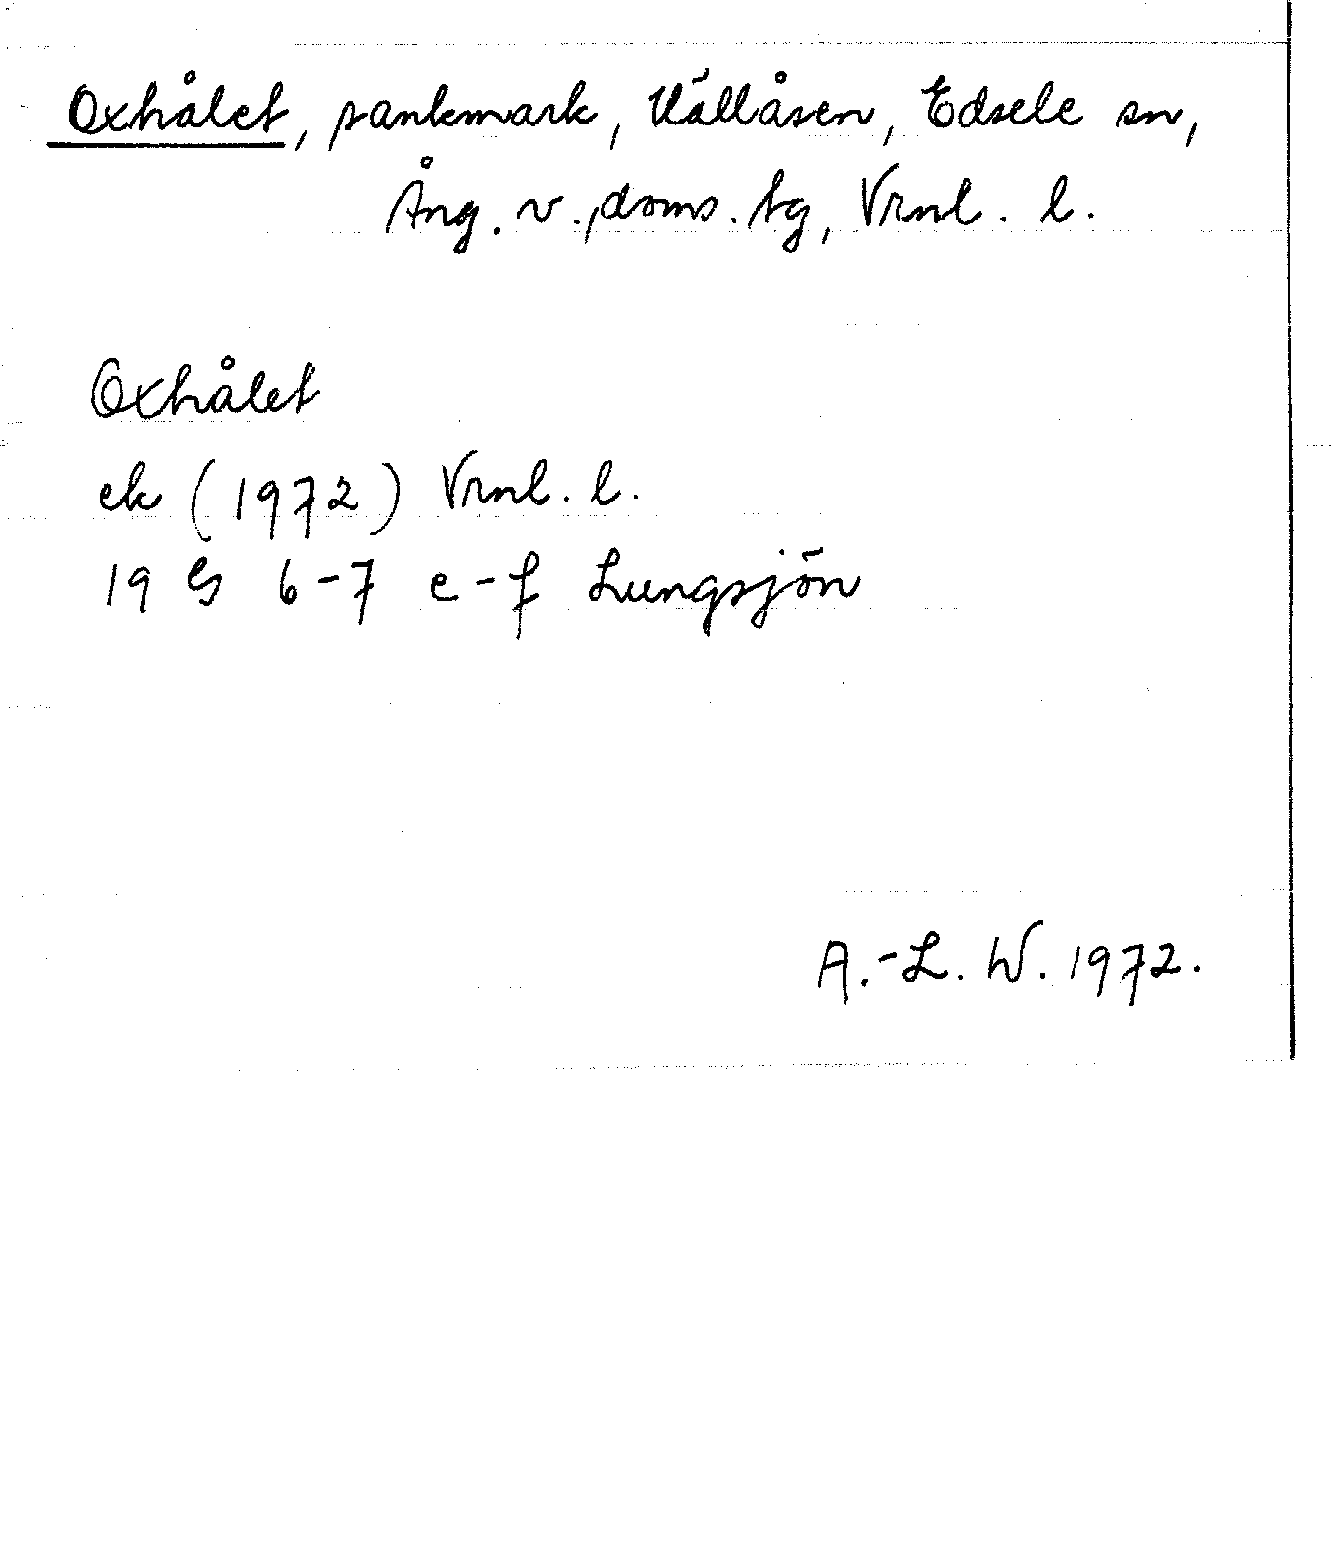 Oxhålet, sankmark, Vällåsen, Edsele sn,
Ång. v., doms. tg, Vrnl. l.
Oxhålet
ek (1972) Vrnl. l.
19 G 6-7 e-f Lungsjön
A.-L. W. 1972.